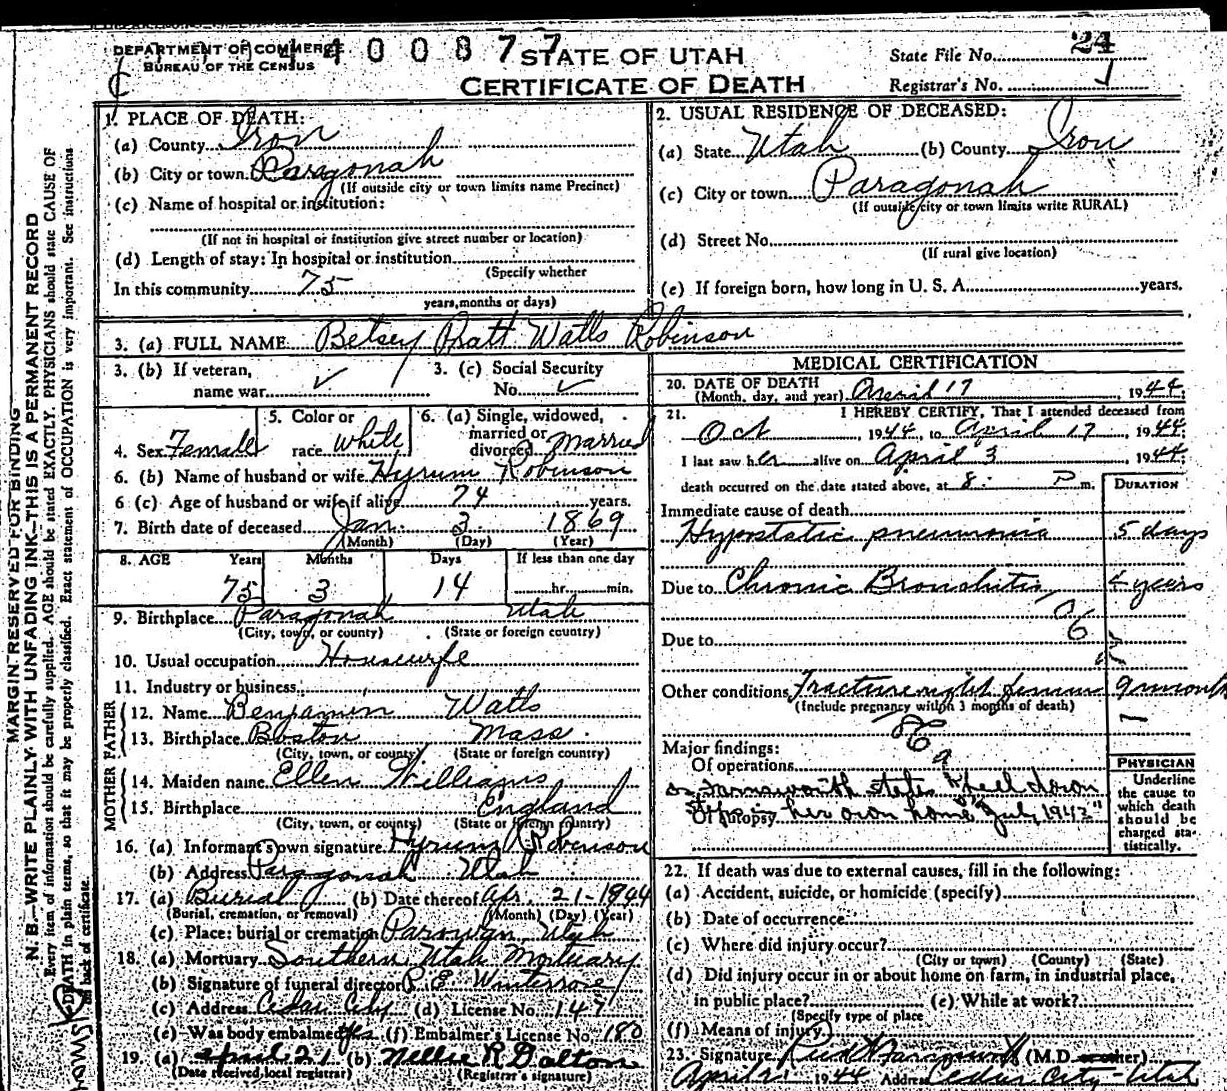 DEPARTMENT OF COMMERCE
BUREAU OF THE CENSUS
4 0 0 0 8 7 7
STATE OF UTAH
CERTIFICATE OF DEATH
State File No. 24
Registrar's No. 1
MARGIN RESERVED FOR BINDING
N. B.—WRITE PLAINLY WITH UNFADING INK—THIS IS A PERMANENT RECORD
Every item of information should be carefully supplied. AGE should be stated EXACTLY. PHYSICIANS should state CAUSE OF
DEATH in plain terms, so that it may be properly classified. Exact statement of OCCUPATION is very important. See instructions
on back of certificate.
1. PLACE OF DEATH:
(a) County Iron
(b) City or town Paragonah
(If outside city or town limits name Precinct)
(c) Name of hospital or institution:
(If not in hospital or institution give street number or location)
(d) Length of stay: In hospital or institution
(Specify whether
In this community 75
years, months or days)
2. USUAL RESIDENCE OF DECEASED:
(a) State Utah (b) County Iron
(c) City or town Paragonah
(If outside city or town limits write RURAL)
(d) Street No.
(If rural give location)
(e) If foreign born, how long in U. S. A. years.
3. (a) FULL NAME Betsey Pratt Watts Robinson
3. (b) If veteran, name war ✓
3. (c) Social Security No. ✓
4. Sex Female
5. Color or race White
6. (a) Single, widowed, married or divorced Married
6. (b) Name of husband or wife Hyrum Robinson
6 (c) Age of husband or wife if alive 74 years.
7. Birth date of deceased Jan. 3 1869
(Month) (Day) (Year)
8. AGE Years Months Days If less than one day
75 3 14 hr. min.
9. Birthplace Paragonah Utah
(City, town, or county) (State or foreign country)
10. Usual occupation Housewife
11. Industry or business
FATHER
12. Name Benjamin Watts
13. Birthplace Boston Mass.
(City, town, or county) (State or foreign country)
MOTHER
14. Maiden name Ellen Williams
15. Birthplace England
(City, town, or county) (State or foreign country)
16. (a) Informant's own signature Hyrum R Robinson
(b) Address Paragonah Utah
17. (a) Burial (b) Date thereof Apr. 21-1944
(Burial, cremation, or removal) (Month) (Day) (Year)
(c) Place: burial or cremation Parowan Utah
18. (a) Mortuary Southern Utah Mortuary
(b) Signature of funeral director R. E. Winterrose
(c) Address Cedar City (d) License No. 147
(e) Was body embalmed Yes (f) Embalmer's License No. 180
19. (a) April 21 (b) Nellie R Dalton
(Date received local registrar) (Registrar's signature)
MEDICAL CERTIFICATION
20. DATE OF DEATH
(Month, day, and year) April 17, 1944
21. I HEREBY CERTIFY, That I attended deceased from
Oct, 1944, to April 17, 1944
I last saw her alive on April 3 1944
death occurred on the date stated above, at 8: P m.
DURATION
Immediate cause of death
Hypostatic pneumonia 5 days
Due to Chronic Bronchitis 4 years
Due to
Other conditions Fracture right femur 9 months
(Include pregnancy within 3 months of death)
Major findings:
Of operations
Of autopsy
states "fell down
steps in her own home July, 1943"
PHYSICIAN
Underline
the cause to
which death
should be
charged sta-
tistically.
22. If death was due to external causes, fill in the following:
(a) Accident, suicide, or homicide (specify)
(b) Date of occurrence
(c) Where did injury occur?
(City or town) (County) (State)
(d) Did injury occur in or about home on farm, in industrial place,
in public place? (e) While at work?
(Specify type of place
(f) Means of injury
23. Signature (M.D. or other)
April 21 1944 Address Cedar City - Utah